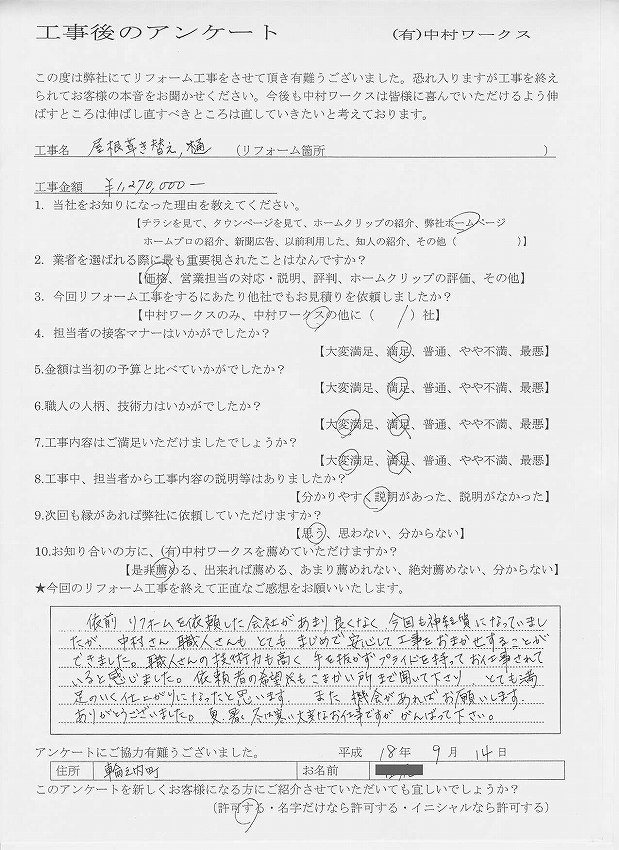 工事後のアンケート　(有)中村ワークス
この度は弊社にてリフォーム工事をさせて頂き有難うございました。恐れ入りますが工事を終え
られてお客様の本音をお聞かせください。今後も中村ワークスは皆様に喜んでいただけるよう伸
ばすところは伸ばし直すべきところは直していきたいと考えております。
工事名　屋根葺き替え,樋　(リフォーム箇所　)
工事金額　¥1,270,000−
1. 当社をお知りになった理由を教えてください。
【チラシを見て、タウンページを見て、ホームクリップの紹介、弊社ホームページ
ホームプロの紹介、新聞広告、以前利用した、知人の紹介、その他（　）】
2. 業者を選ばれる際に最も重要視されたことはなんですか？
【価格、営業担当の対応・説明、評判、ホームクリップの評価、その他】
3. 今回リフォーム工事をするにあたり他社でもお見積りを依頼しましたか？
【中村ワークスのみ、中村ワークスの他に（ / ）社】
4. 担当者の接客マナーはいかがでしたか？
【大変満足、満足、普通、やや不満、最悪】
5.金額は当初の予算と比べていかがでしたか？
【大変満足、満足、普通、やや不満、最悪】
6.職人の人柄、技術力はいかがでしたか？
【大変満足、満足、普通、やや不満、最悪】
7.工事内容はご満足いただけましたでしょうか？
【大変満足、満足、普通、やや不満、最悪】
8.工事中、担当者から工事内容の説明等はありましたか？
【分かりやすく説明があった、説明がなかった】
9.次回も縁があれば弊社に依頼していただけますか？
【思う、思わない、分からない】
10.お知り合いの方に、(有)中村ワークスを薦めていただけますか？
【是非薦める、出来れば薦める、あまり薦めれない、絶対薦めない、分からない】
★今回のリフォーム工事を終えて正直なご感想をお願いいたします。
依前 リフォームを依頼した会社があまり良くなく 今回も神経質になっていまし
たが、中村さん 職人さんも とても まじめで安心して工事をおまかせすることが
できました。職人さんの技術力も高く 手を抜かずプライドを持ってお仕事されて
いると感じました。依頼者の希望も こまかい所まで聞いて下さり、とても満
足のいく仕上がりになったと思います　また 機会があればお願いします.
ありがとうございました。夏暑く 冬は寒い大変なお仕事ですが がんばって下さい。
アンケートにご協力有難うございました。　平成 18年 9月 14日
住所　輪之内町　お名前
このアンケートを新しくお客様になる方にご紹介させていただいても宜しいでしょうか？
(許可する・名字だけなら許可する・イニシャルなら許可する)